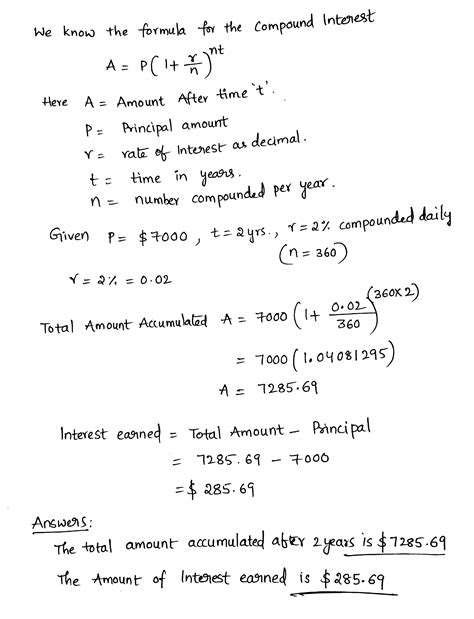 We know the formula for the Compound Interest
A = P(1 + r/n)^nt
Here A = Amount After time 't'.
P = Principal amount
r = rate of Interest as decimal.
t = time in years.
n = number compounded per year.
Given P = $7000, t = 2 yrs., r = 2% compounded daily
(n = 360)
r = 2% = 0.02
Total Amount Accumulated A = 7000 (1 + 0.02/360)^(360x2)
= 7000 (1.04081295)
A = 7285.69
Interest earned = Total Amount - Principal
= 7285.69 - 7000
= $285.69
Answers:
The total amount accumulated after 2 years is $7285.69
The Amount of Interest earned is $285.69